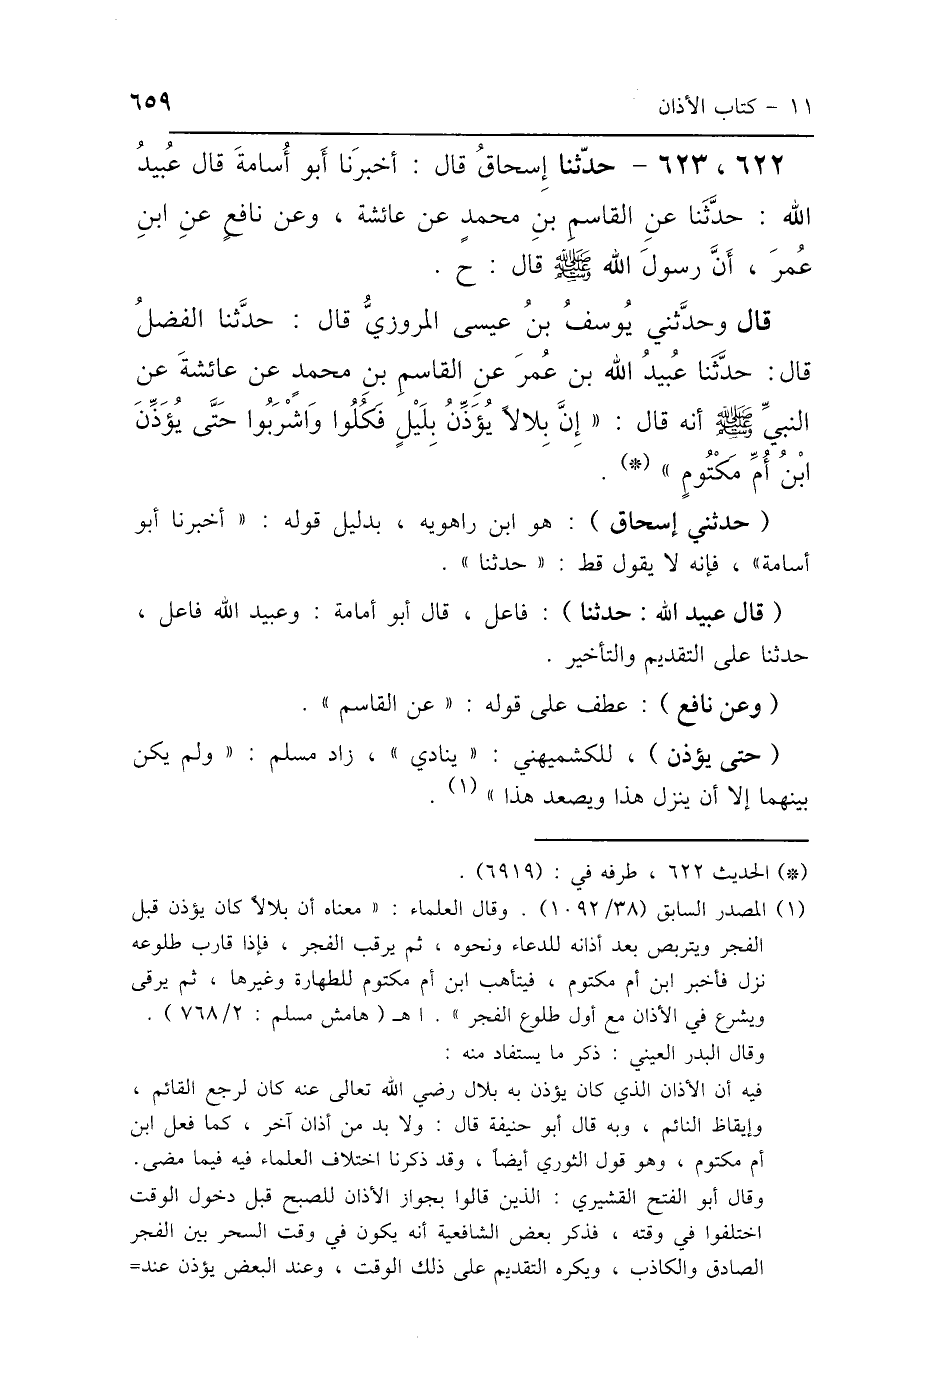 ١١ - كتاب الأذان ٦٥٩
٦٢٢ ، ٦٢٣ - حدّثنا إسحاقُ قال : أخبرَنا أبو أُسامةَ قال عُبيدُ
الله : حدَّثَنا عنِ القاسمِ بنِ محمدٍ عن عائشة ، وعن نافعٍ عنِ ابنِ
عُمرَ ، أنَّ رسولَ الله ﷺ قال : ح .
قال وحدَّثني يُوسفُ بنُ عيسى المروزيُّ قال : حدَّثنا الفضلُ
قال: حدَّثَنا عبيدُ الله بن عُمرَ عنِ القاسمِ بنِ محمدٍ عن عائشةَ عن
النبيِّ ﷺ أنه قال : « إِنَّ بِلالاً يُؤَذِّنُ بِلَيْلٍ فَكُلُوا وَاشْرَبُوا حَتَّى يُؤَذِّنَ
ابْنُ أُمِّ مَكْتُومٍ » (*) .
( حدثني إسحاق ) : هو ابن راهويه ، بدليل قوله : « أخبرنا أبو
أسامة» ، فإنه لا يقول قط : « حدثنا » .
( قال عبيد الله : حدثنا ) : فاعل ، قال أبو أمامة : وعبيد الله فاعل ،
حدثنا على التقديم والتأخير .
( وعن نافع ) : عطف على قوله : « عن القاسم » .
( حتى يؤذن ) ، للكشميهني : « ينادي » ، زاد مسلم : « ولم يكن
بينهما إلا أن ينزل هذا ويصعد هذا » (١) .
(*) الحديث ٦٢٢ ، طرفه في : (٦٩١٩) .
(١) المصدر السابق (١٠٩٢/٣٨) . وقال العلماء : « معناه أن بلالاً كان يؤذن قبل
الفجر ويتربص بعد أذانه للدعاء ونحوه ، ثم يرقب الفجر ، فإذا قارب طلوعه
نزل فأخبر ابن أم مكتوم ، فيتأهب ابن أم مكتوم للطهارة وغيرها ، ثم يرقى
ويشرع في الأذان مع أول طلوع الفجر » . ا هـ ( هامش مسلم : ٧٦٨/٢ ) .
وقال البدر العيني : ذكر ما يستفاد منه :
فيه أن الأذان الذي كان يؤذن به بلال رضي الله تعالى عنه كان لرجع القائم ،
وإيقاظ النائم ، وبه قال أبو حنيفة قال : ولا بد من أذان آخر ، كما فعل ابن
أم مكتوم ، وهو قول الثوري أيضاً ، وقد ذكرنا اختلاف العلماء فيه فيما مضى.
وقال أبو الفتح القشيري : الذين قالوا بجواز الأذان للصبح قبل دخول الوقت
اختلفوا في وقته ، فذكر بعض الشافعية أنه يكون في وقت السحر بين الفجر
الصادق والكاذب ، ويكره التقديم على ذلك الوقت ، وعند البعض يؤذن عند=